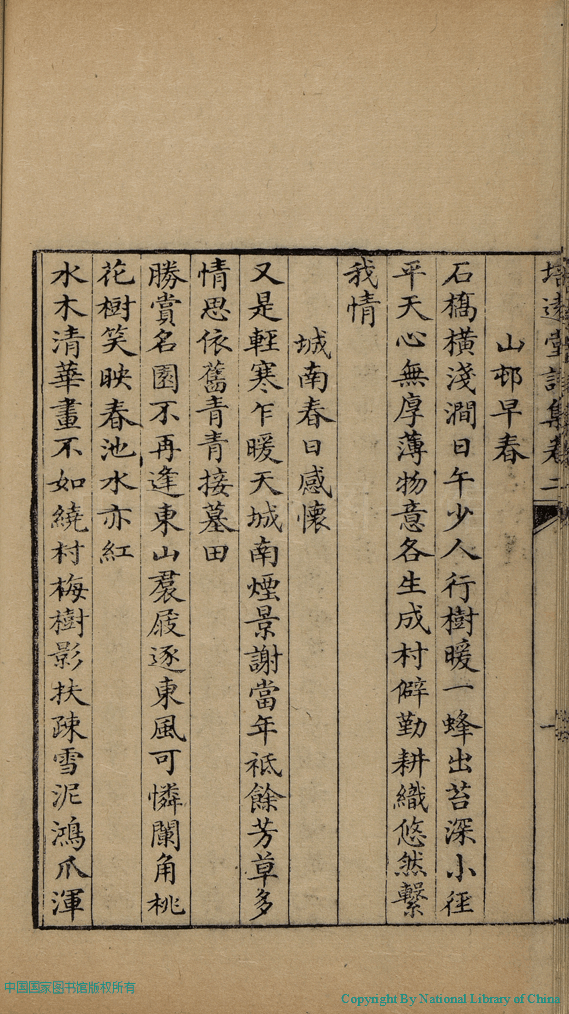 培遠堂詩集卷二
一
山邨早春
石橋橫淺澗日午少人行樹暖一蜂出苔深小徑
平天心無厚薄物意各生成村僻勤耕織悠然繫
我情
城南春日感懷
又是輕寒乍暖天城南煙景謝當年祗餘芳草多
情思依舊青青接墓田
勝賞名園不再逢東山裠屐逐東風可憐闌角桃
花樹笑映春池水亦紅
水木清華畫不如繞村梅樹影扶疎雪泥鴻爪渾
中国国家图书馆版权所有
Copyright By National Library of China